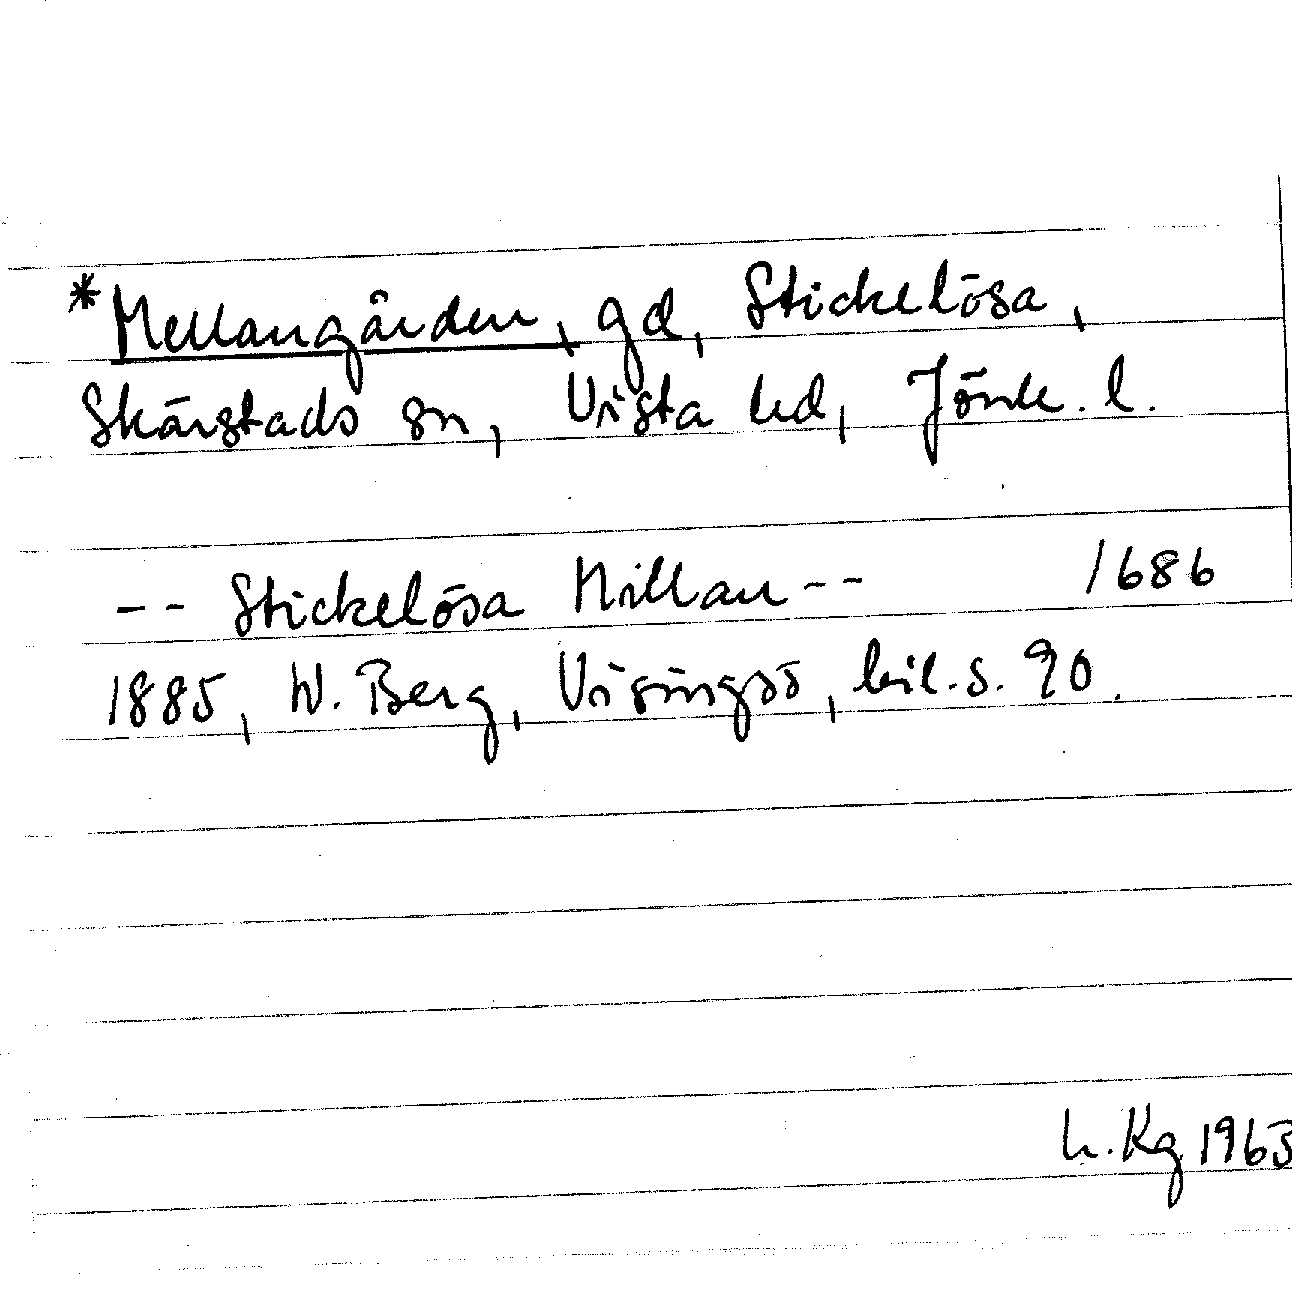 *Mellangården, gd, Stickelösa,
Skärstads sn, Vista hd, Jönk. l.
-- Stickelösa Millan -- 1686
1885, W. Berg, Visingsö, bil. s. 90.
h. Kg 1963